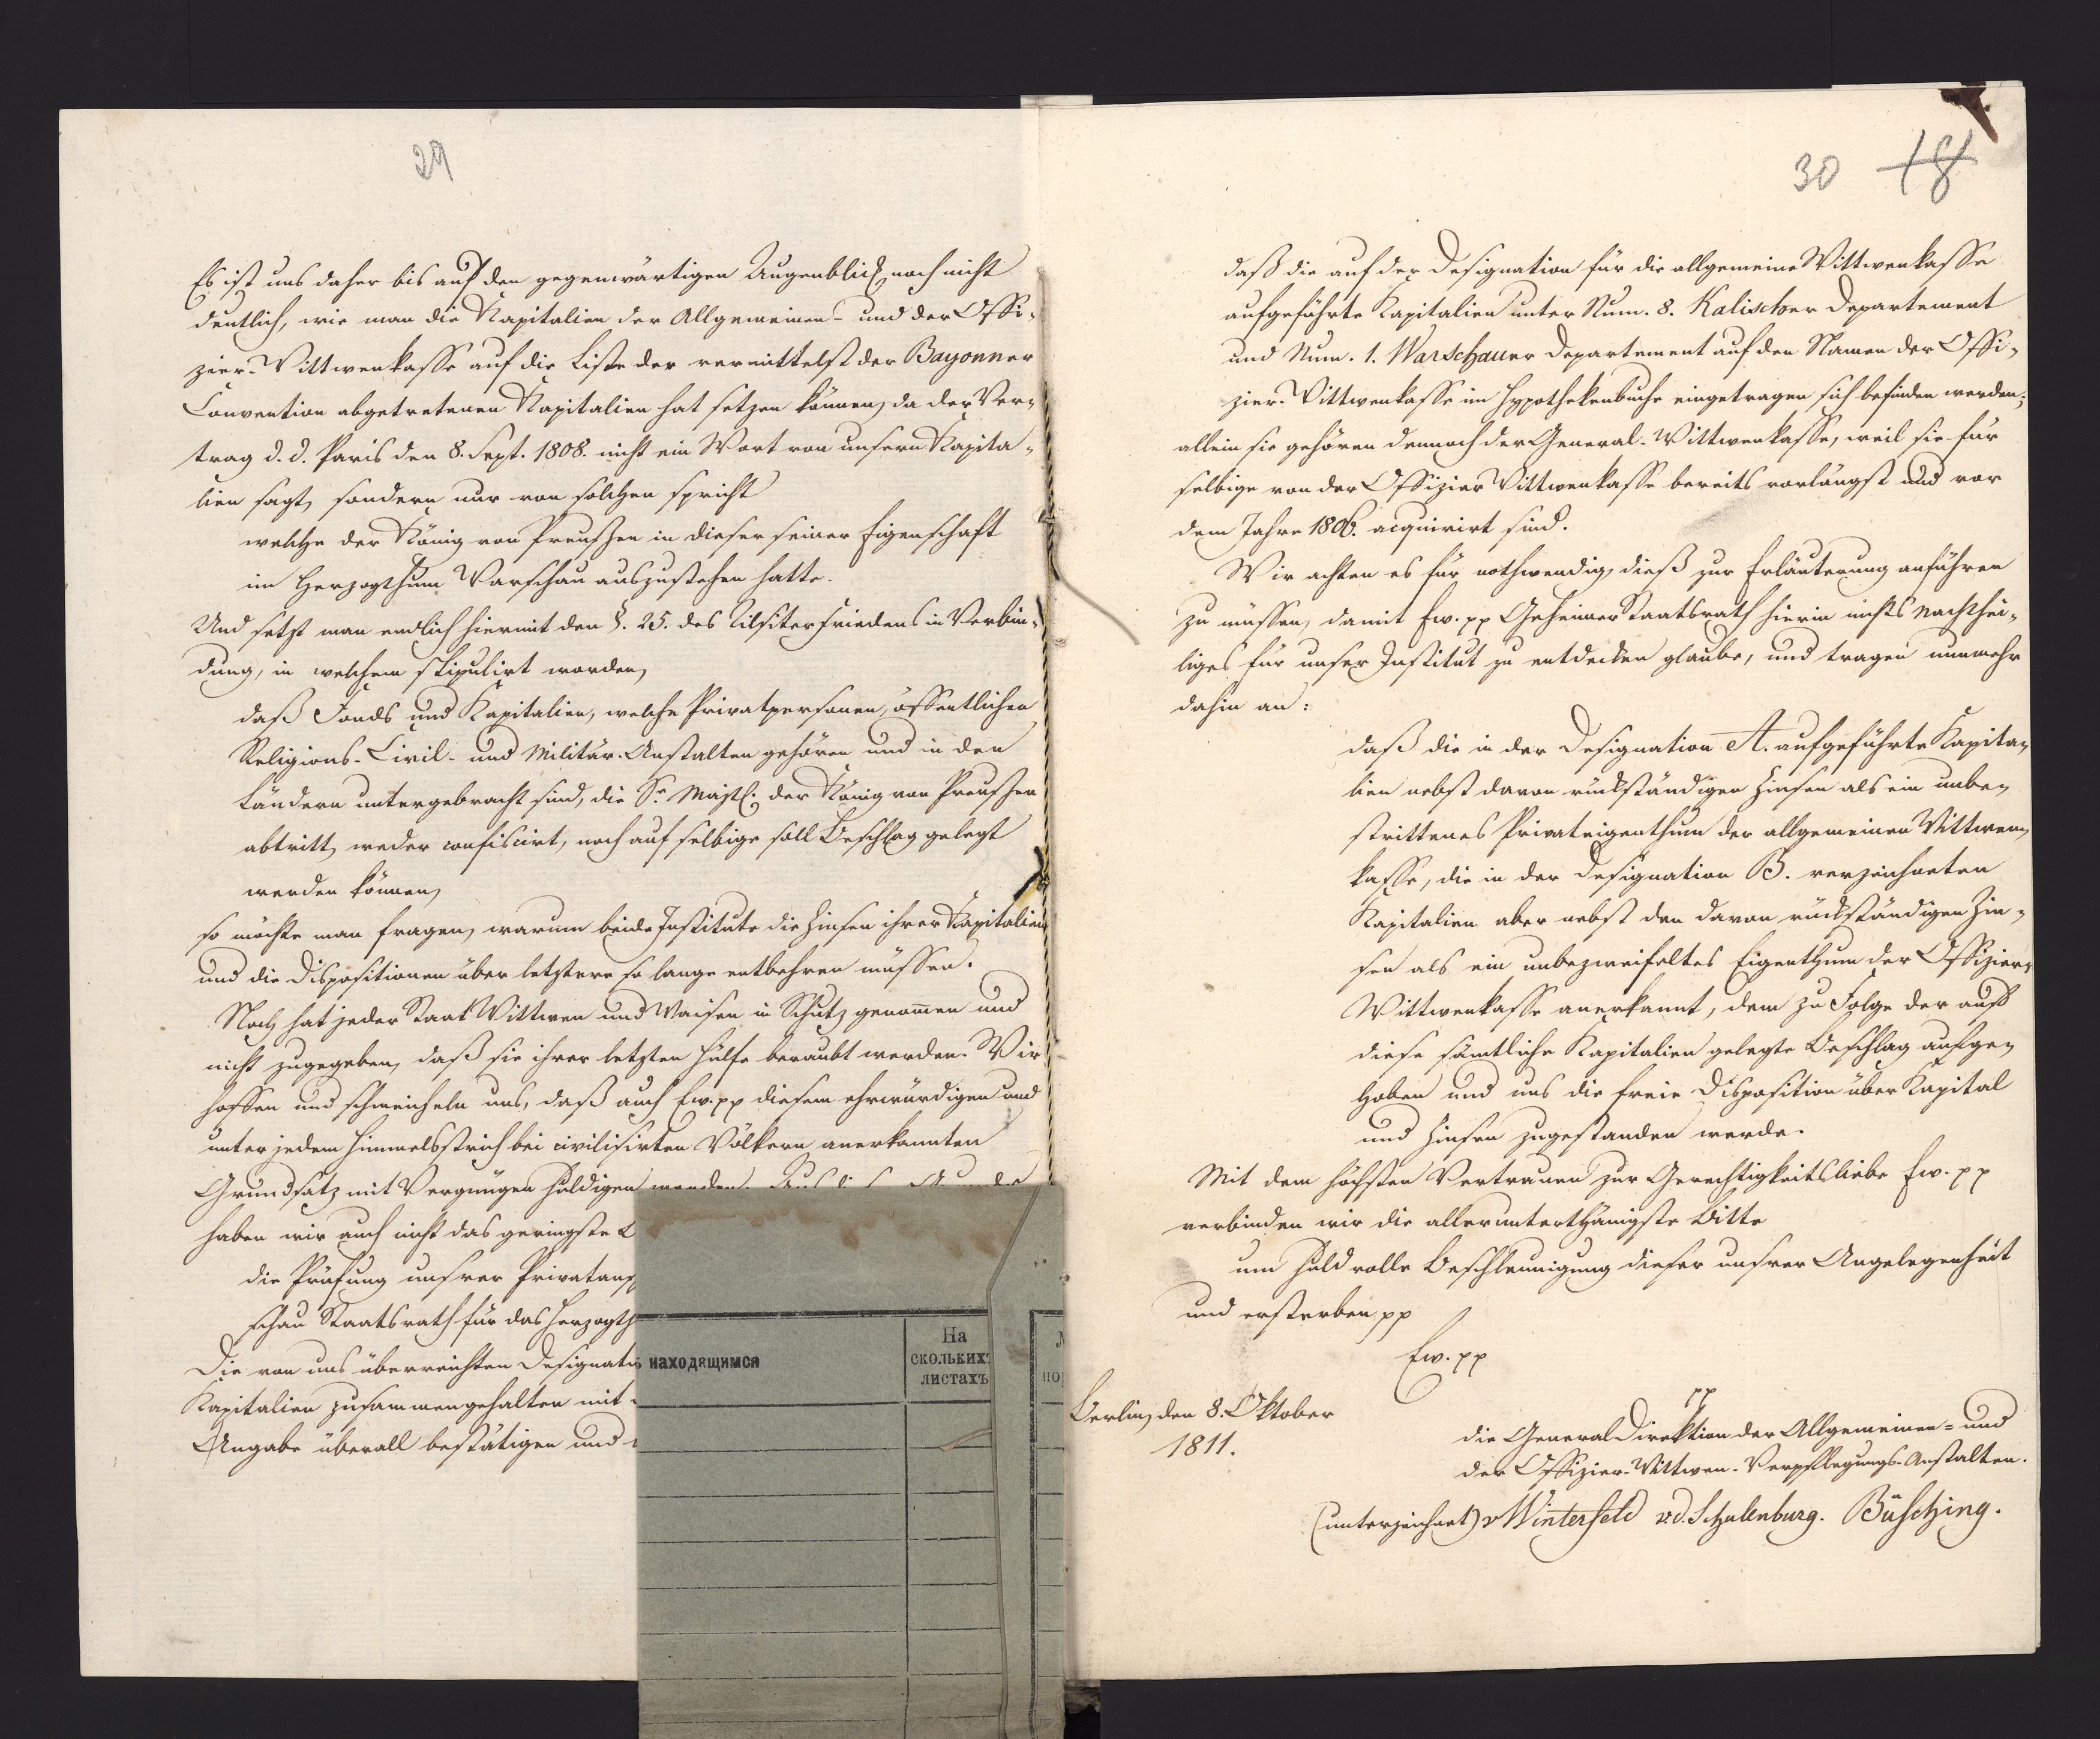 29
Es ist uns daher bis auf den gegenwärtigen Augenblick noch nicht
deutlich, wie man die Kapitalien der Allgemeinen- und der Offi-
zier-Wittwenkasse auf die Liste der vermittelst der Bayonner
Convention abgetretenen Kapitalien hat setzen können, da der Ver-
trag d. d. Paris den 8. Sept. 1808. nicht ein Wort von unsern Kapita-
lien sagt, sondern nur von solchen spricht
welche der König von Preußen in dieser seiner Eigenschaft
im Herzogthum Warschau auszustehen hatte.
Und setzt man endlich hiermit den §. 25. des Tilsiter Friedens in Verbin-
dung, in welchem stipulirt worden,
daß Fonds und Kapitalien, welche Privatpersonen, öffentlichen
Religions- Civil- und Militär-Anstalten gehören und in den
Ländern untergebracht sind, die Sr. Majst. der König von Preußen
abtritt, weder confiscirt, noch auf selbige soll Beschlag gelegt
werden können,
so möchte man fragen, warum beide Institute die Zinsen ihrer Kapitalien
und die Dispositionen über letztere so lange entbehren müssen.
Noch hat jeder Staat Wittwen und Waisen in Schutz genommen und
nicht zugegeben, daß sie ihrer letzten Hülfe beraubt werden. Wir
hoffen und schmeicheln uns, daß auch Ew. pp diesem ehrwürdigen und
unter jedem Himmelsstrich bei civilisirten Völkern anerkannten
Grundsatz mit Vergnügen huldigen werden.
haben wir auch nicht das geringste
die Prüfung unsrer Privatansp
schau Staatsrath für das Herzogth
Die von uns überreichten Designatio
Kapitalien zusammengehalten mit
Angabe überall bestätigen und
находящимся
На
скольких
листахъ
30 18
daß die auf der Designation für die allgemeine Wittwenkasse
aufgeführte Kapitalien unter Num. 8. Kalischer Departement
und Num. 1. Warschauer Departement auf den Namen der Offi-
zier-Wittwenkasse im Hypothekenbuche eingetragen sich befinden werden;
allein sie gehören dennoch der General-Wittwenkasse, weil sie für
selbige von der Offizier Wittwenkasse bereits vorlängst und vor
dem Jahre 1806. acquirirt sind.
Wir achten es für nothwendig, dieß zur Erläuterung anführen
zu müssen, damit Ew. pp Geheimer Staatsrath hierin nichts nachthei-
liges für unser Institut zu entdecken glaube, und tragen nunmehr
dahin an:
daß die in der Designation A. aufgeführte Kapita-
lien nebst davon rückständigen Zinsen als ein unbe-
strittenes Privateigenthum der allgemeinen Wittwen-
kasse, die in der Designation B. verzeichneten
Kapitalien aber nebst den davon rückständigen Zin-
sen als ein unbezweifeltes Eigenthum der Offizier-
Wittwenkasse anerkannt, dem zu Folge der auf
diese sämtliche Kapitalien gelegte Beschlag aufge-
hoben und uns die freie Disposition über Kapital
und Zinsen zugestanden werde.
Mit dem höchsten Vertrauen zur Gerechtigkeitsliebe Ew. pp
verbinden wir die allerunterthänigste Bitte
um huldvolle Beschleunigung dieser unsrer Angelegenheit
und ersterben pp
Ew. pp
Berlin, den 8. Oktober
1811.
pp
die General Direktion der Allgemeinen- und
der Offizier-Wittwen-Verpflegungs-Anstalten.
(unterzeichnet) v Winterfeld v.d. Schulenburg. Büsching.